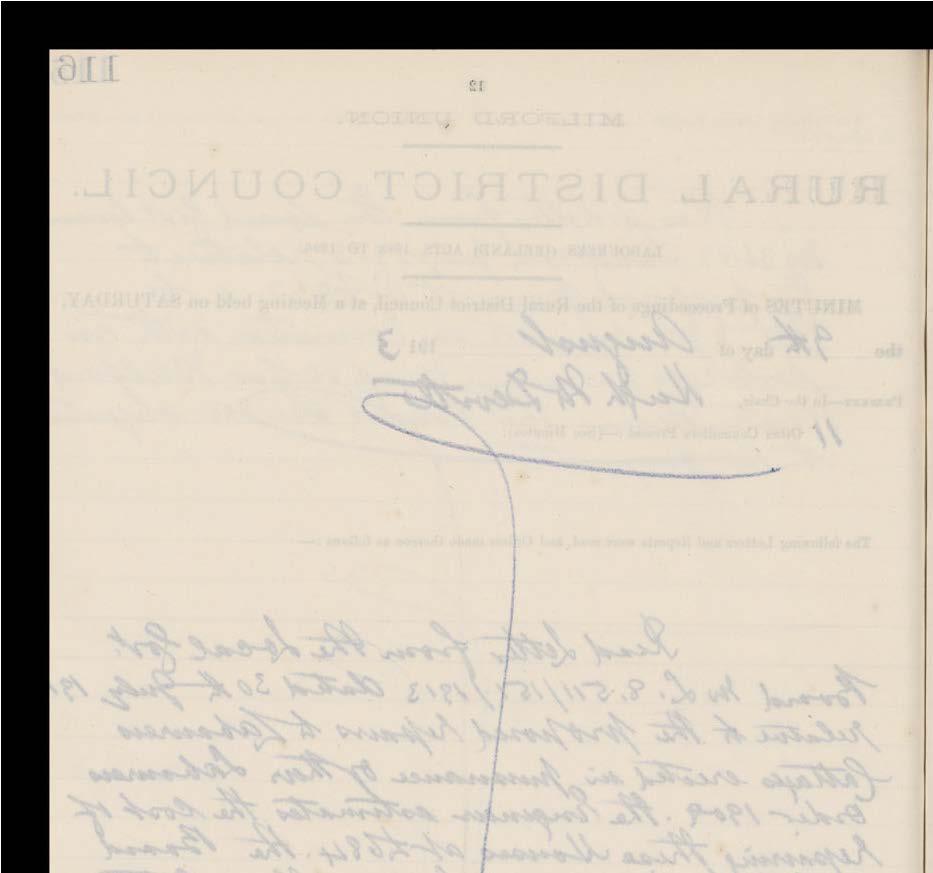 116
12
MILFORD UNION.
RURAL DISTRICT COUNCIL.
LABOURERS (IRELAND) ACTS,
MINUTES of Proceedings of the Rural District Council, at a Meeting held on SATURDAY,
the 9th day of August 1913
PRESENT—In the Chair, Hugh
11 Other Councillors Present:—(See Minutes):
The following Letters and Reports were read, and Orders made thereon as follows:—
Read Letter from the Local Govt.
Board No L. 1913 dated 30th July
relative to the proposed repairs to Labourers
Cottages erected in pursuance of their Labourers
Order 1909. The Engineer estimates the Cost of
Repairing these Houses at £684. the Board